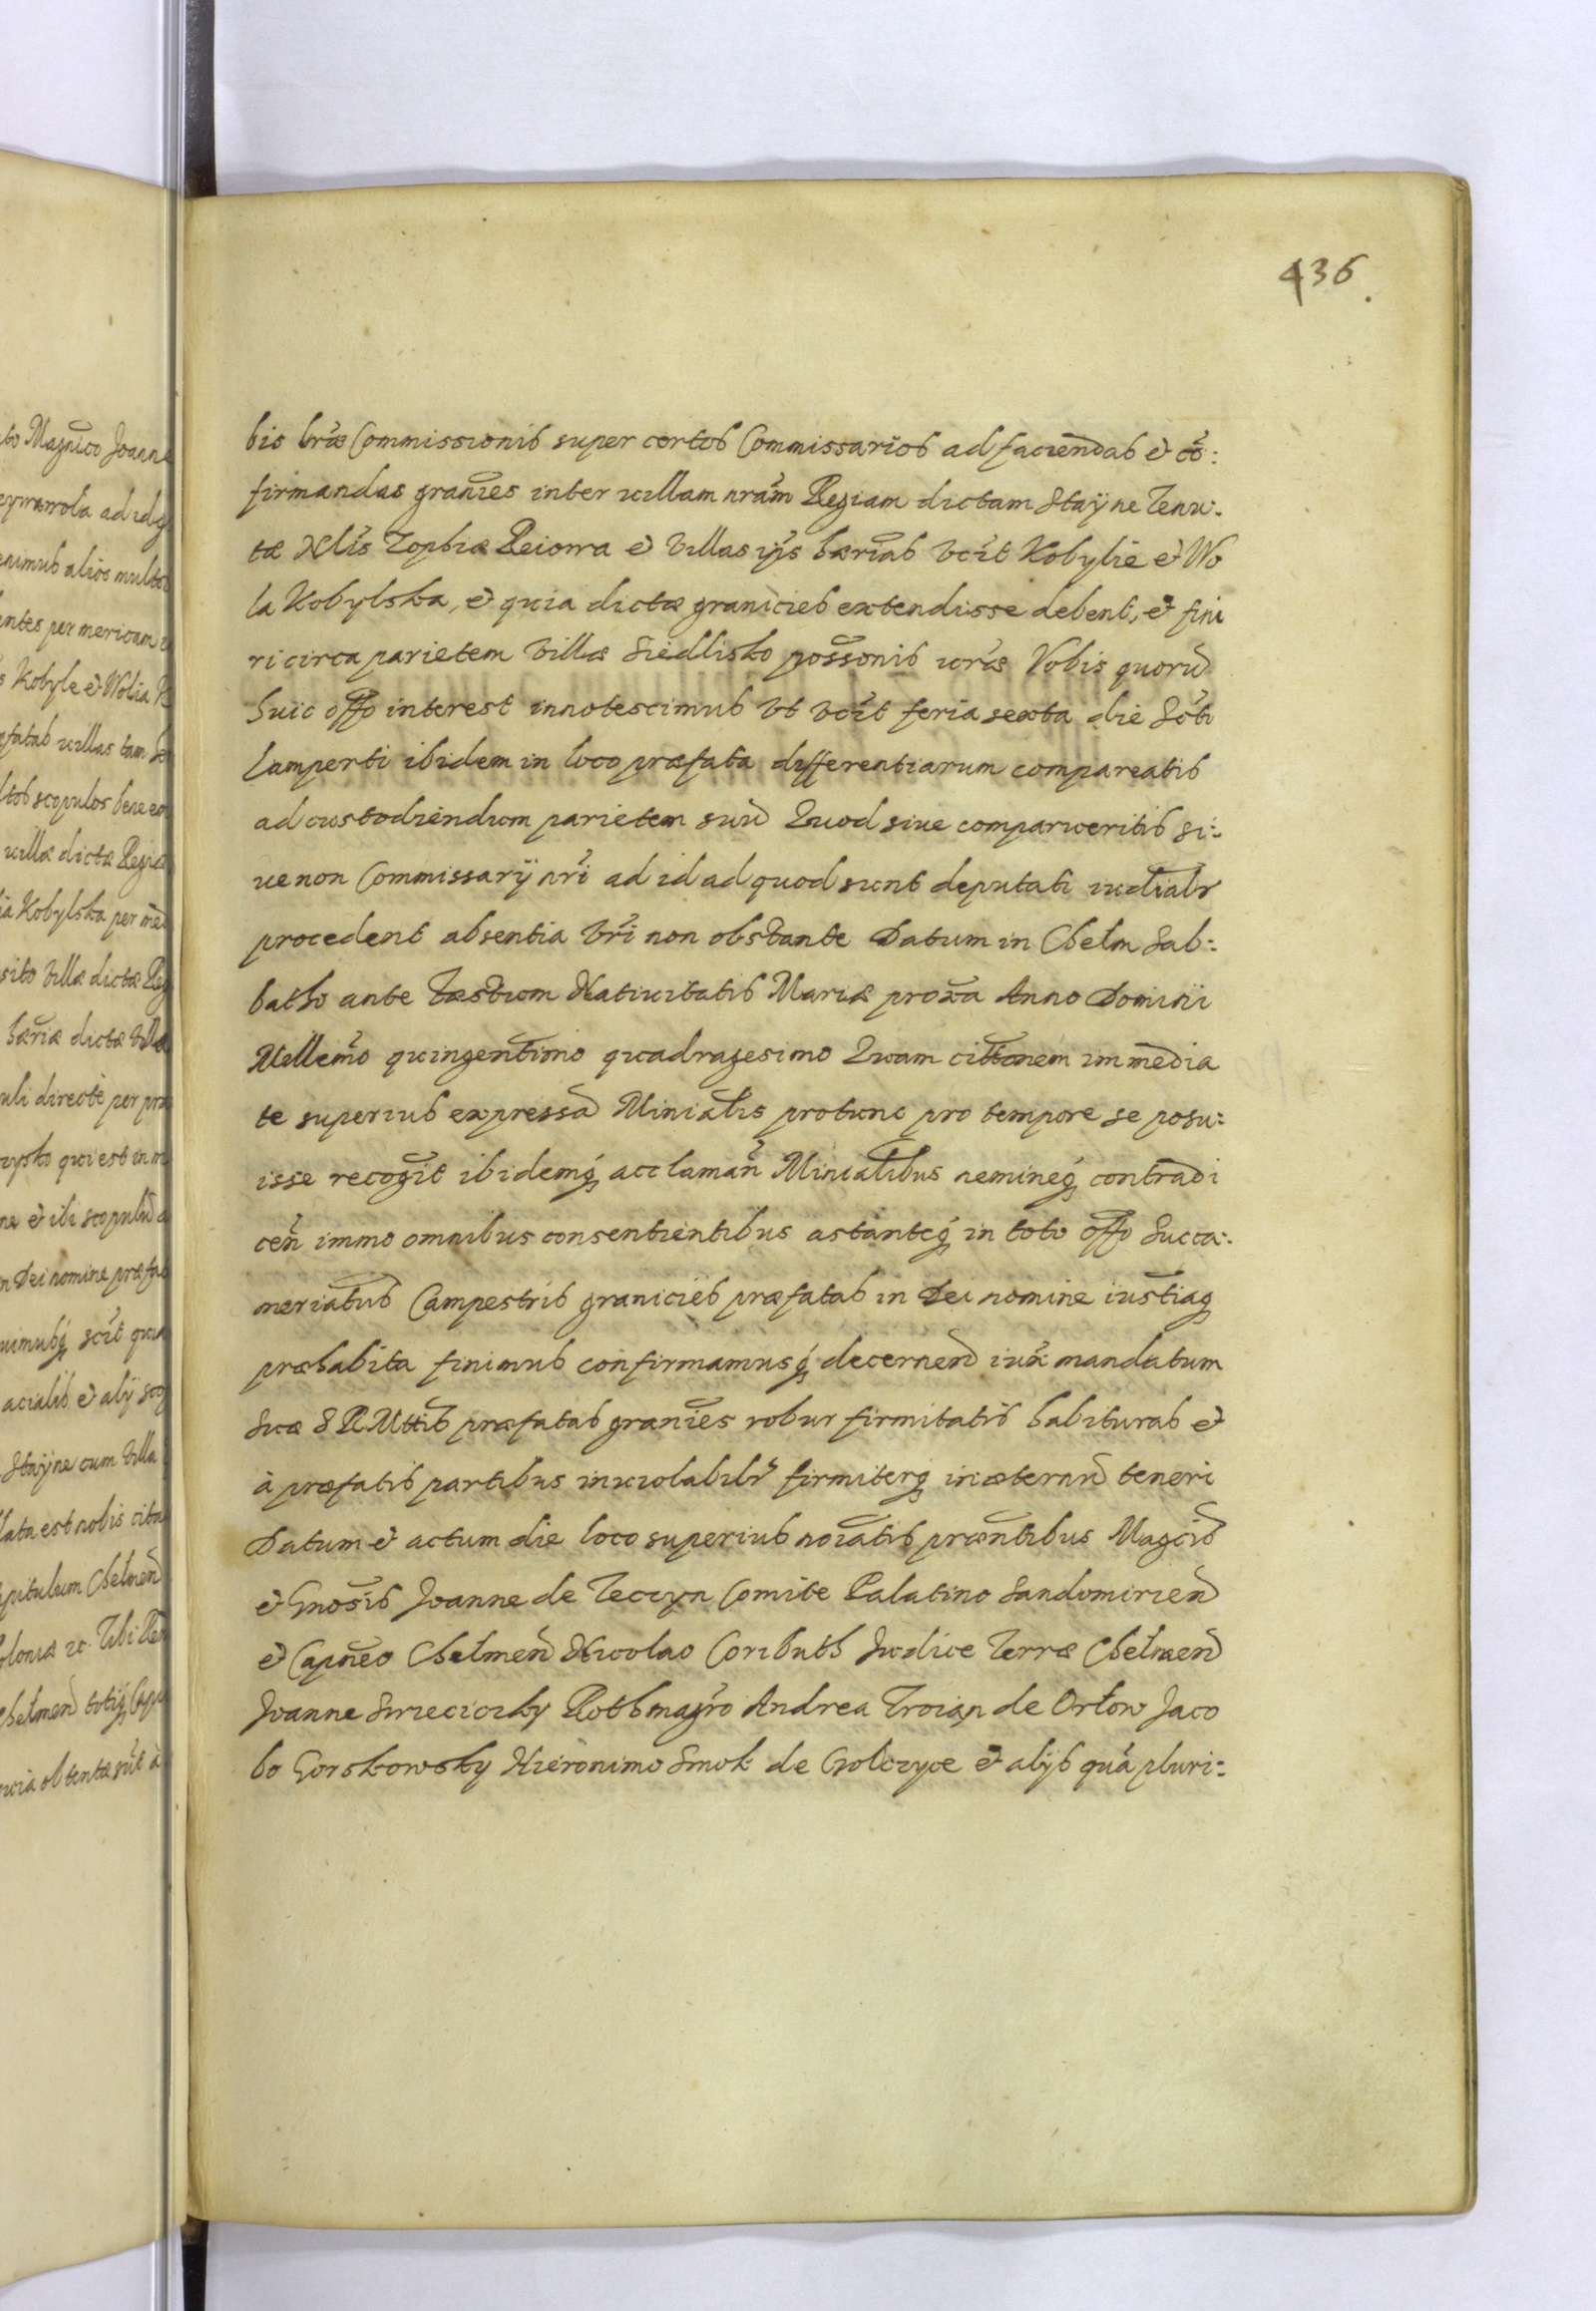 436.
bis lr̃æ Commissionis super certos Commissarios ad faciendas et cõ:
firmandas granies inter uillam nram Regiam dictam Stayne Tenu:
tæ Nlis Zophiæ Reiowa et Villas ijs hæriab vcit Kobylie et Wo
la Kobylska, et quia dictæ granicies extendisse debent, et fini
ri circa parietem villæ Siedlisko possonis uræ Vobis quorũ
huic offo interest innotescimus vt vcit feria sexta die Scti
Lamperti ibidem in loco præfata differentiarum compareatis
ad custodiendum parietem suũ Quod siue comparueritis si:
ue non Commissarij nri ad id ad quod sunt deputati iudialr
procedent absentia vri non obstante Datum in Chełm Sab:
batho ante Fæstum Natiuitatis Mariæ proxa Anno Domini
Millemo quingentimo quadragesimo Quam cittonem immedia
te superius expressã Minialis protunc pro tempore se posu:
isse recogit ibidemq acclaman Minialibus nemineq contradi
cen immo omnibus consentientibus astanteq in toto offo Succa:
meriatus Campestris granicies præfatas in Dei nomine iustiaq
præhabita finimus confirmamusq decernend iux mandatum
Suæ S R Mttis præfatas granies robur firmitatis habituras et
à præfatis partibus inuiolabilr firmiterq in æternũ teneri
Datum et actum die loco superius noiatis præntibus Magcis
et Gnosis Joanne de Teczyn Comite Palatino Sandomirien
et Capneo Chełmen Nicolao Coributh Judice Terræ Chełmen
Joanne Swiecicky Rothmagro Andrea Troian de Orłow Jaco
bo Gorskowsky Hieronimo Smok de Cołczyce et alijs quã pluri: